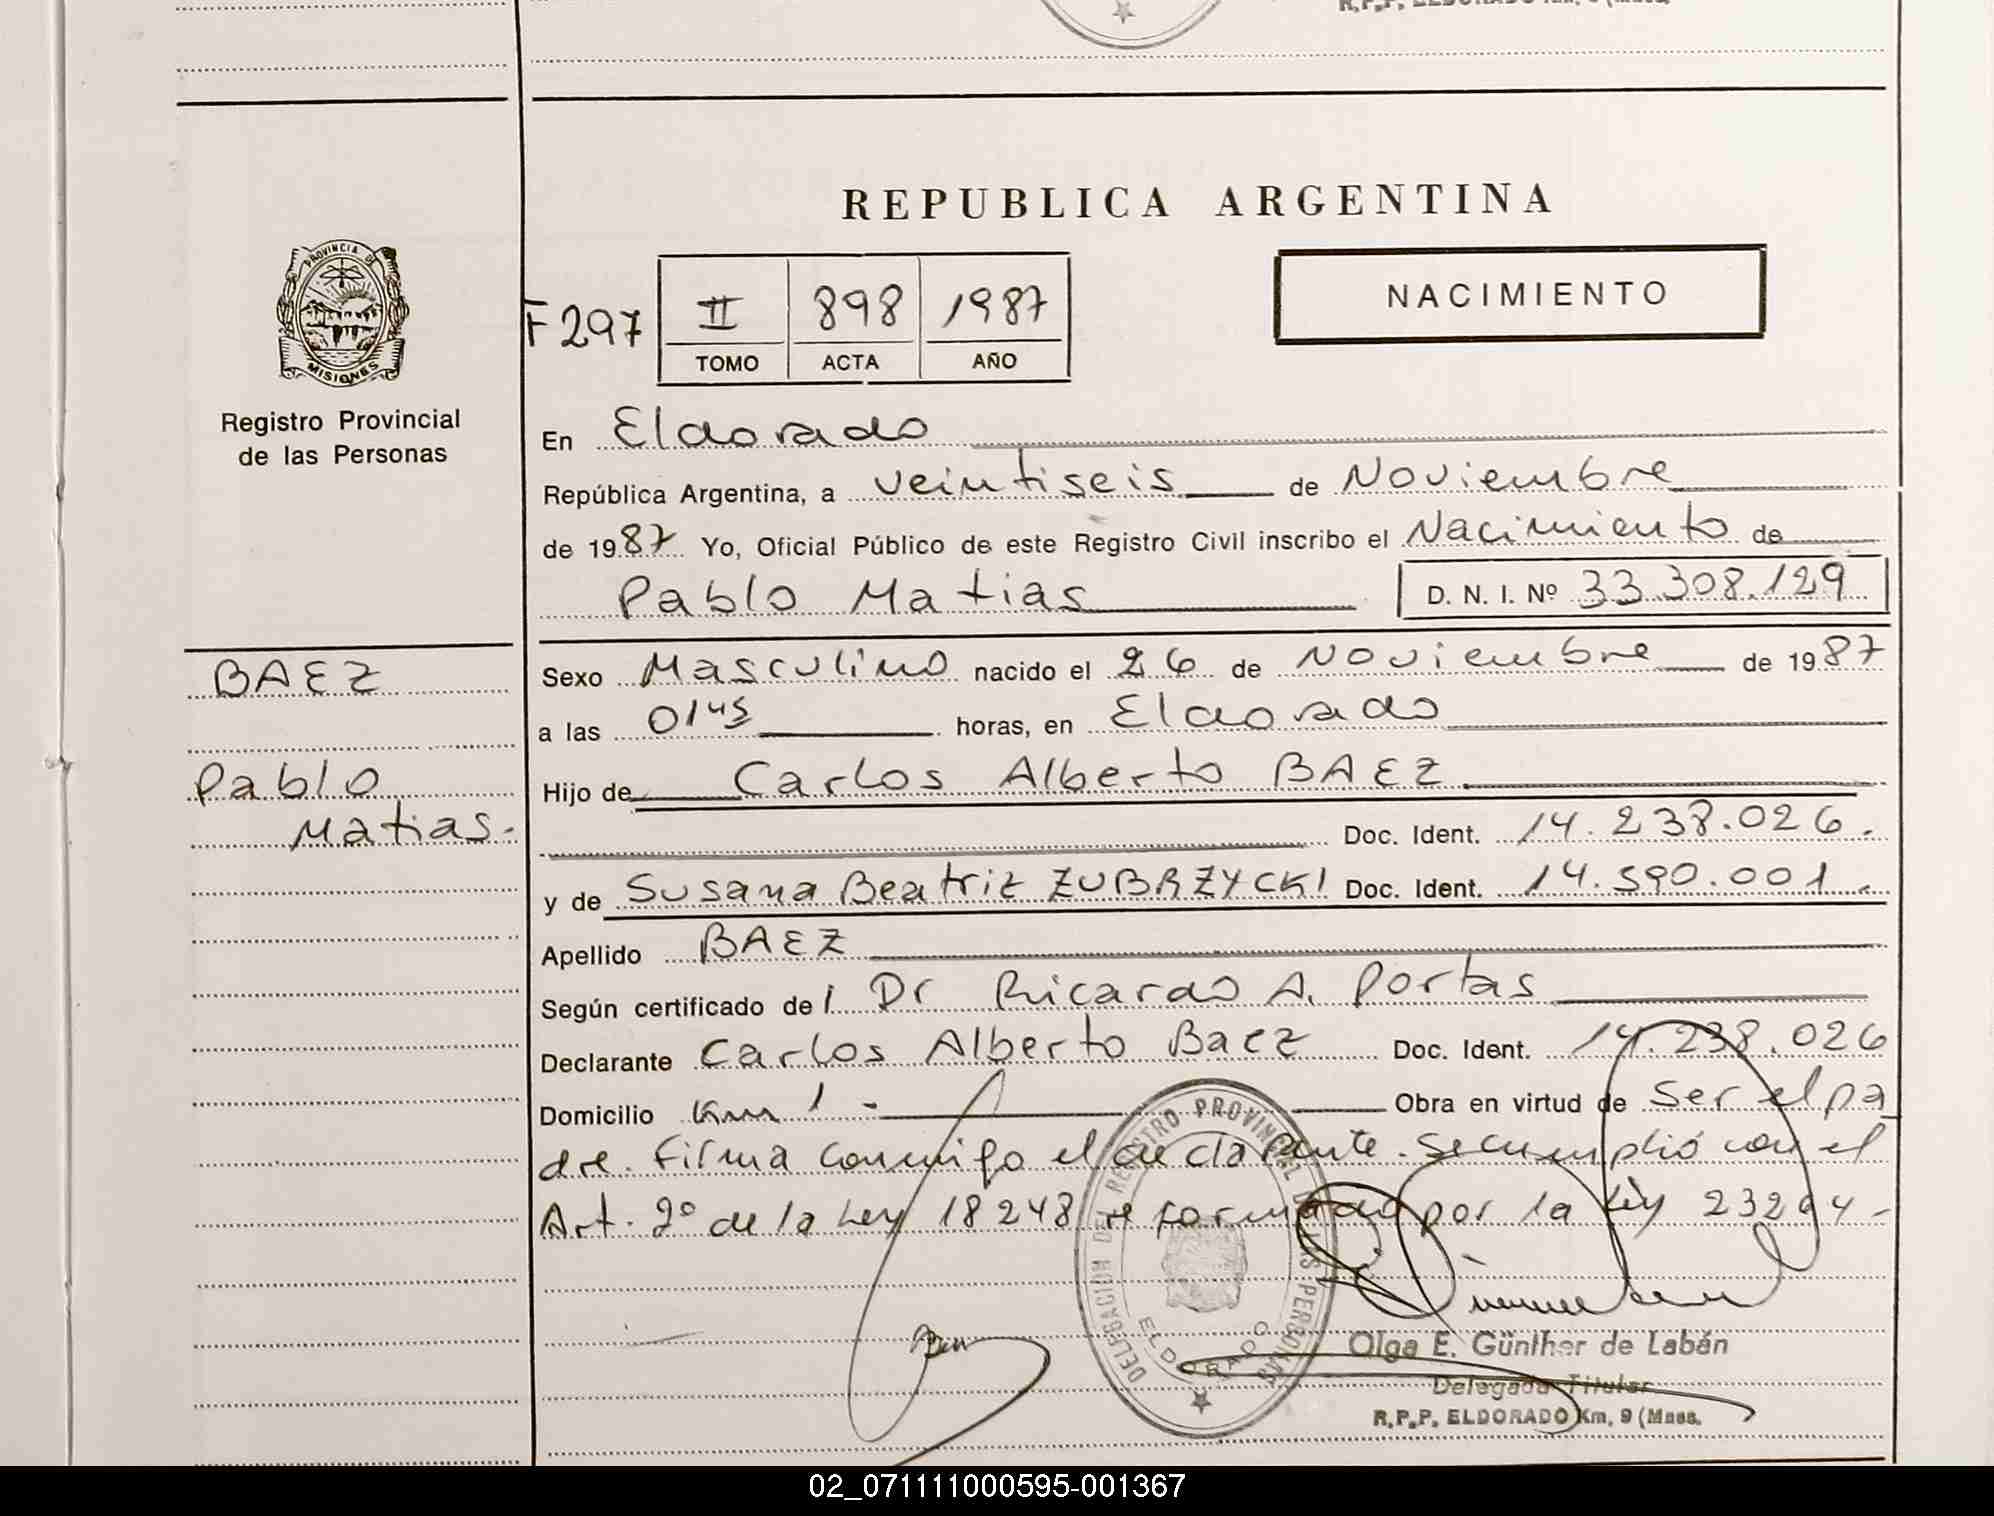 R.P.P. ELDORADO Km, 9 (Mnes.
REPUBLICA ARGENTINA
PROVINCIA DE
MISIONES
Registro Provincial
de las Personas
F 297
II 898 1987
TOMO ACTA AÑO
NACIMIENTO
En Eldorado
República Argentina, a veintiseis de Noviembre
de 1987 Yo, Oficial Público de este Registro Civil inscribo el Nacimiento de
Pablo Matias D. N. I. Nº 33.308.129
BAEZ
Pablo
Matias.
Sexo Masculino nacido el 26 de Noviembre de 1987
a las 01 45 horas, en Eldorado
Hijo de Carlos Alberto BAEZ
Doc. Ident. 14.238.026.
y de Susana Beatriz ZUBRZYCKI Doc. Ident. 14.590.001.
Apellido BAEZ
Según certificado de l Dr Ricardo A. Portas
Declarante Carlos Alberto Baez Doc. Ident. 14.238.026
Domicilio Km 1 - Obra en virtud de Ser el pa
dre. Firma conmigo el declarante. Se cumplió con el
Art. 2º de la Ley 18248 reformado por la Ley 23264-
DELEGACION DE REGISTRO PROVINCIAL DE LAS PERSONAS
ELDORADO
Olga E. Günther de Labán
Delegada Titular
R.P.P. ELDORADO Km, 9 (Mnes.
02_071111000595-001367